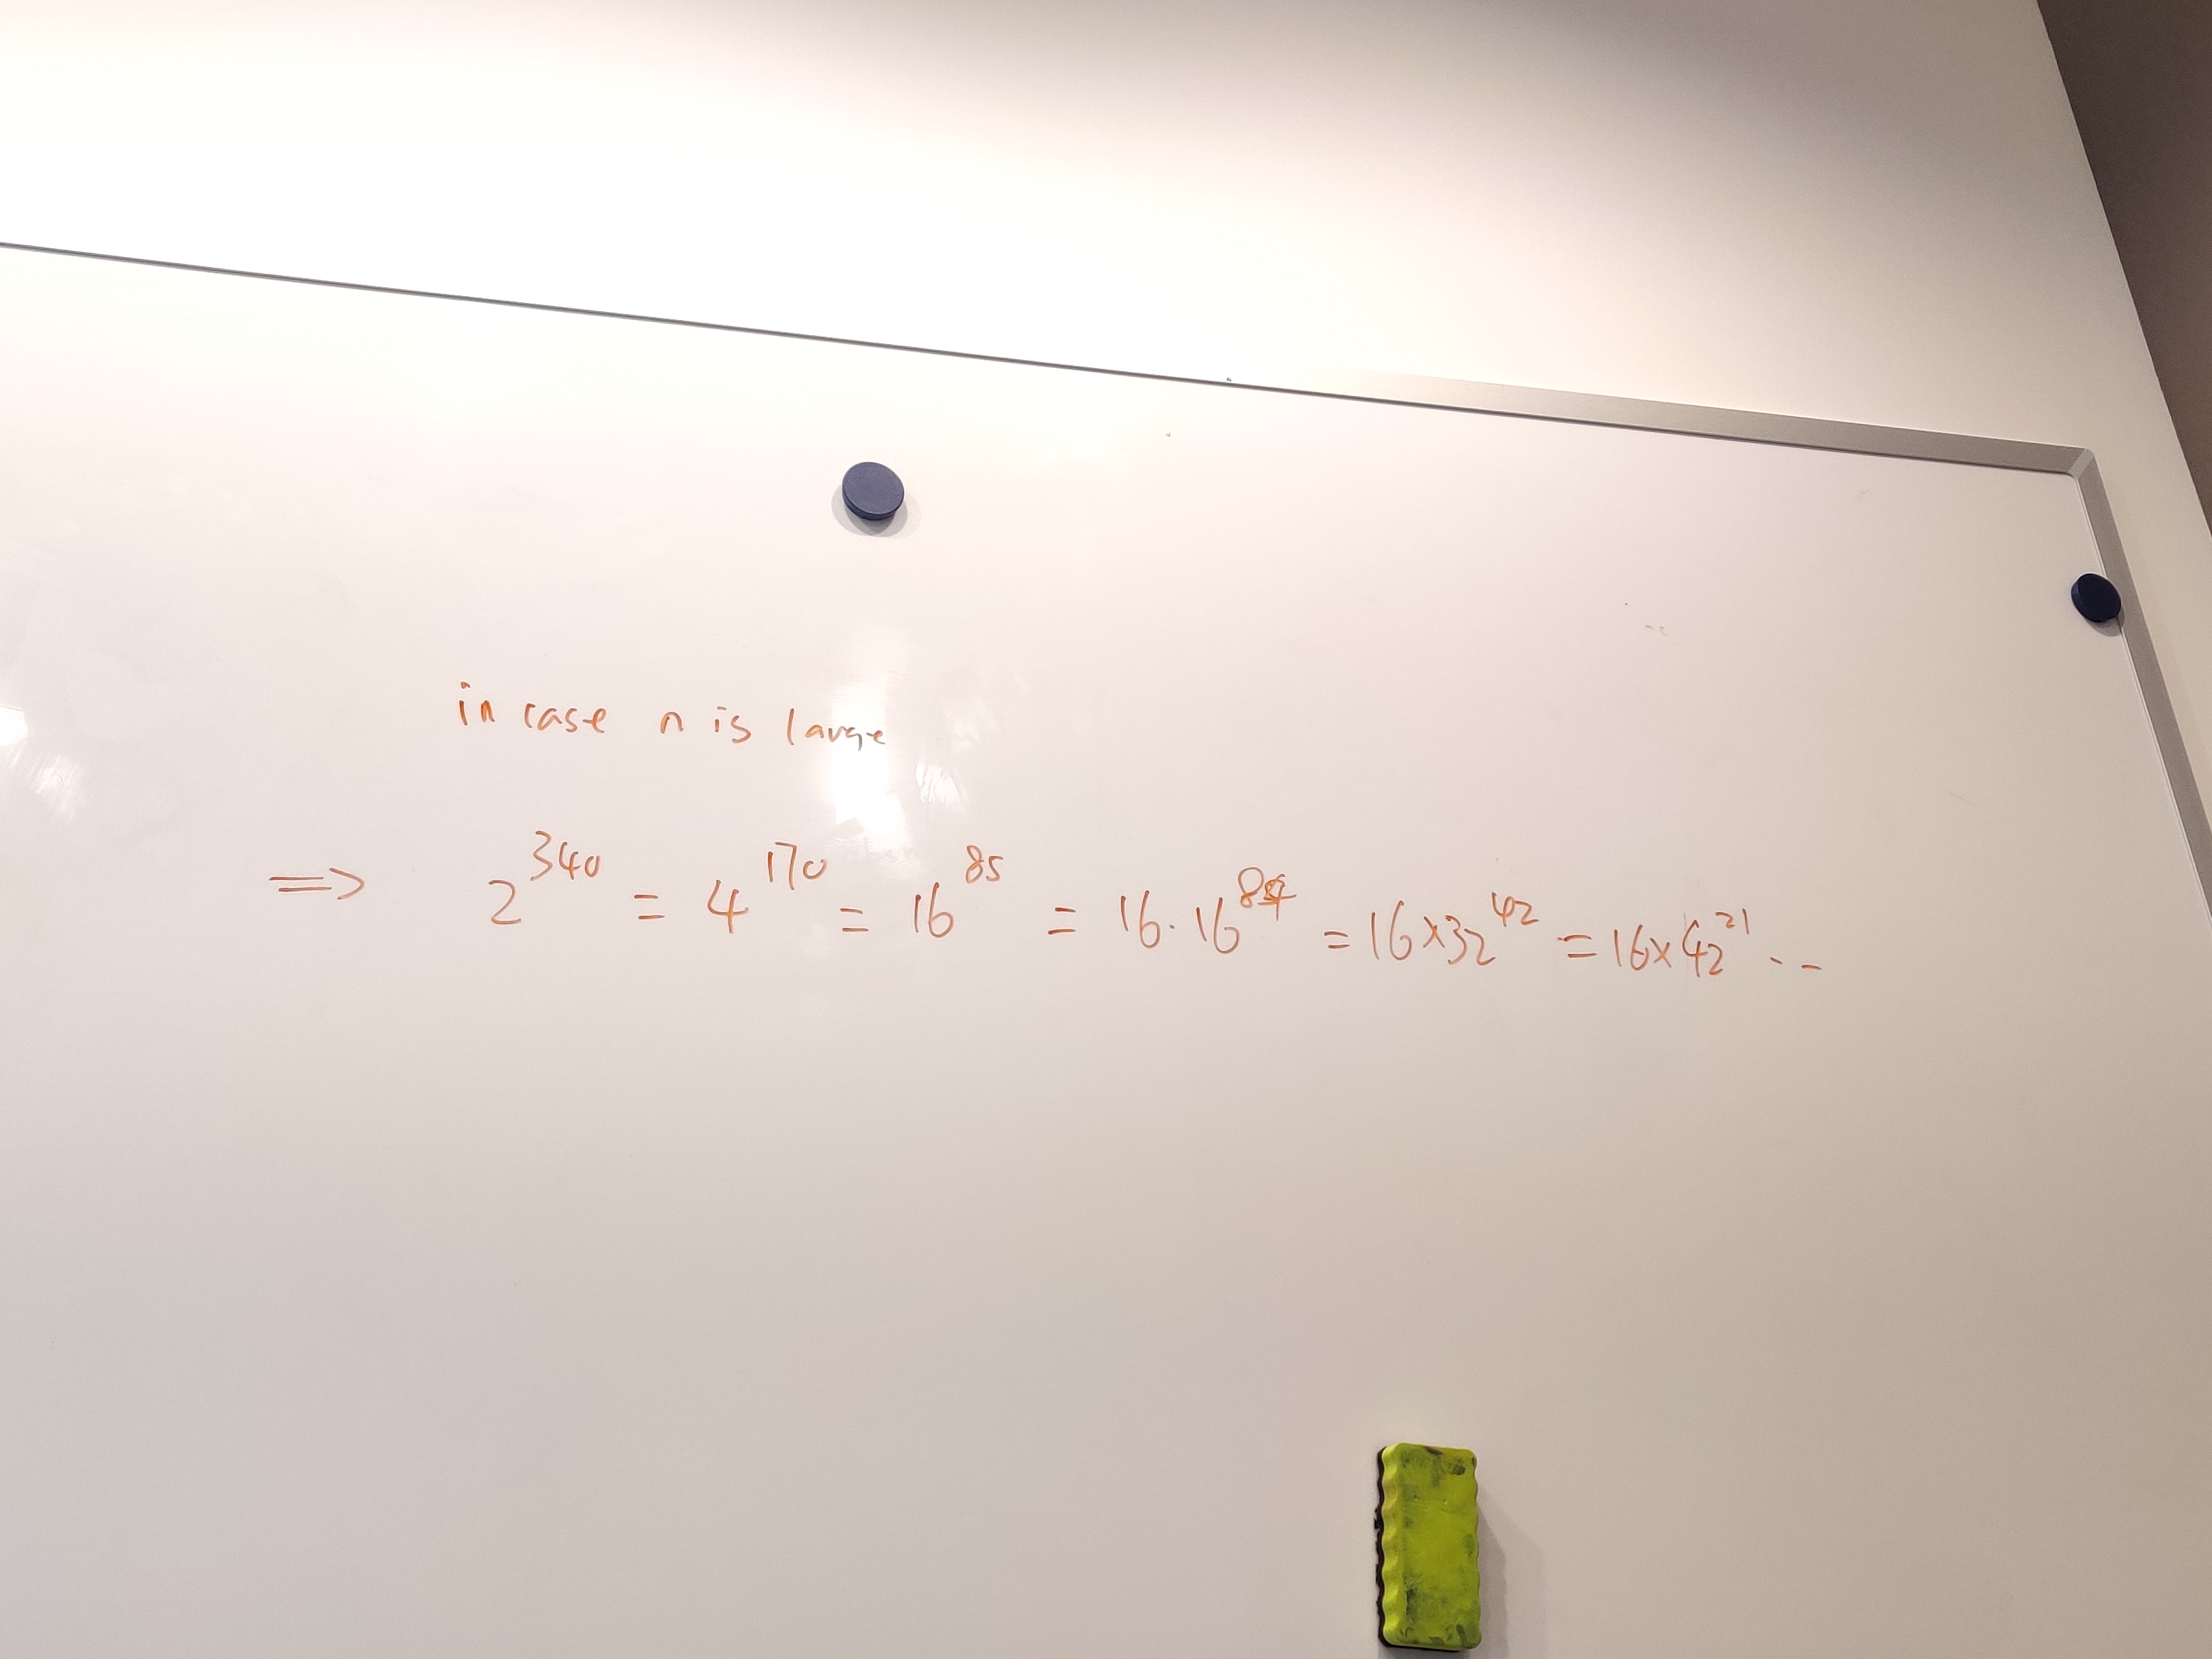 in case n is large
=> 2^340 = 4^170 = 16^85 = 16·16^84 = 16×32^42 = 16×42^21 ...